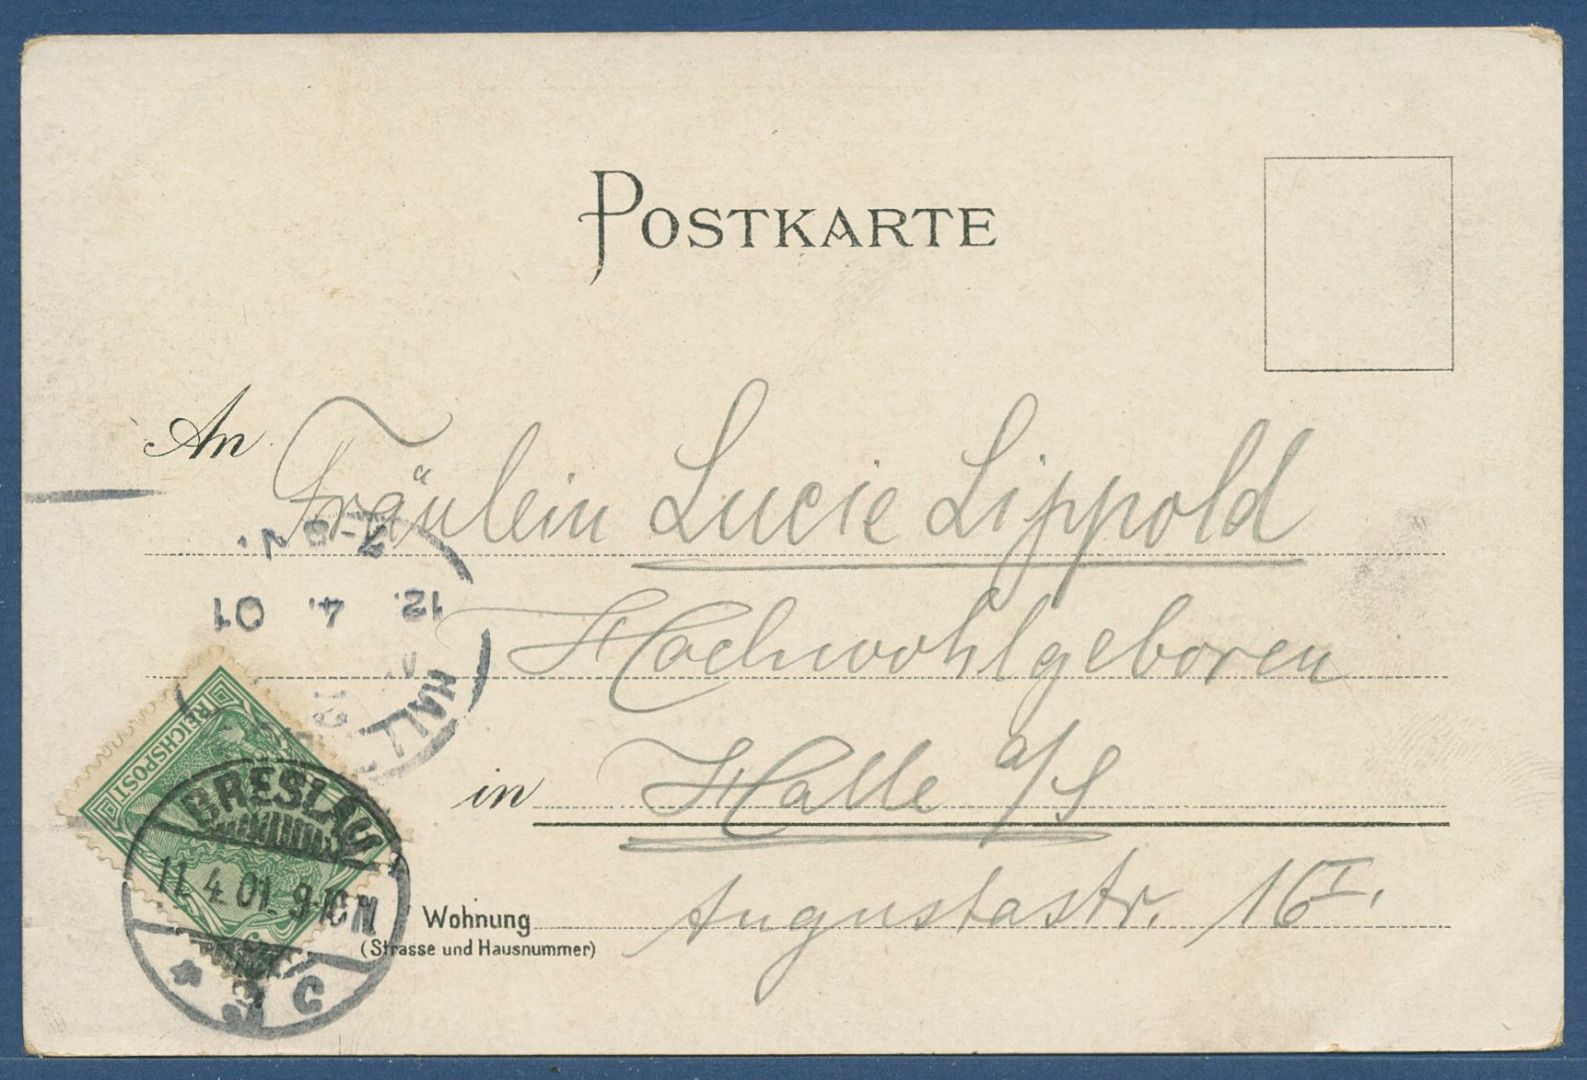 POSTKARTE
An Fräulein Lucie Lippold
Hochwohlgeboren
in Halle a/S
Wohnung Augustastr. 16 I.
(Strasse und Hausnummer)
7-8 N.
12. 4. 01
HALL
REICHSPOST
BRESLAU
11. 4. 01. 9-10 N
* 2 C